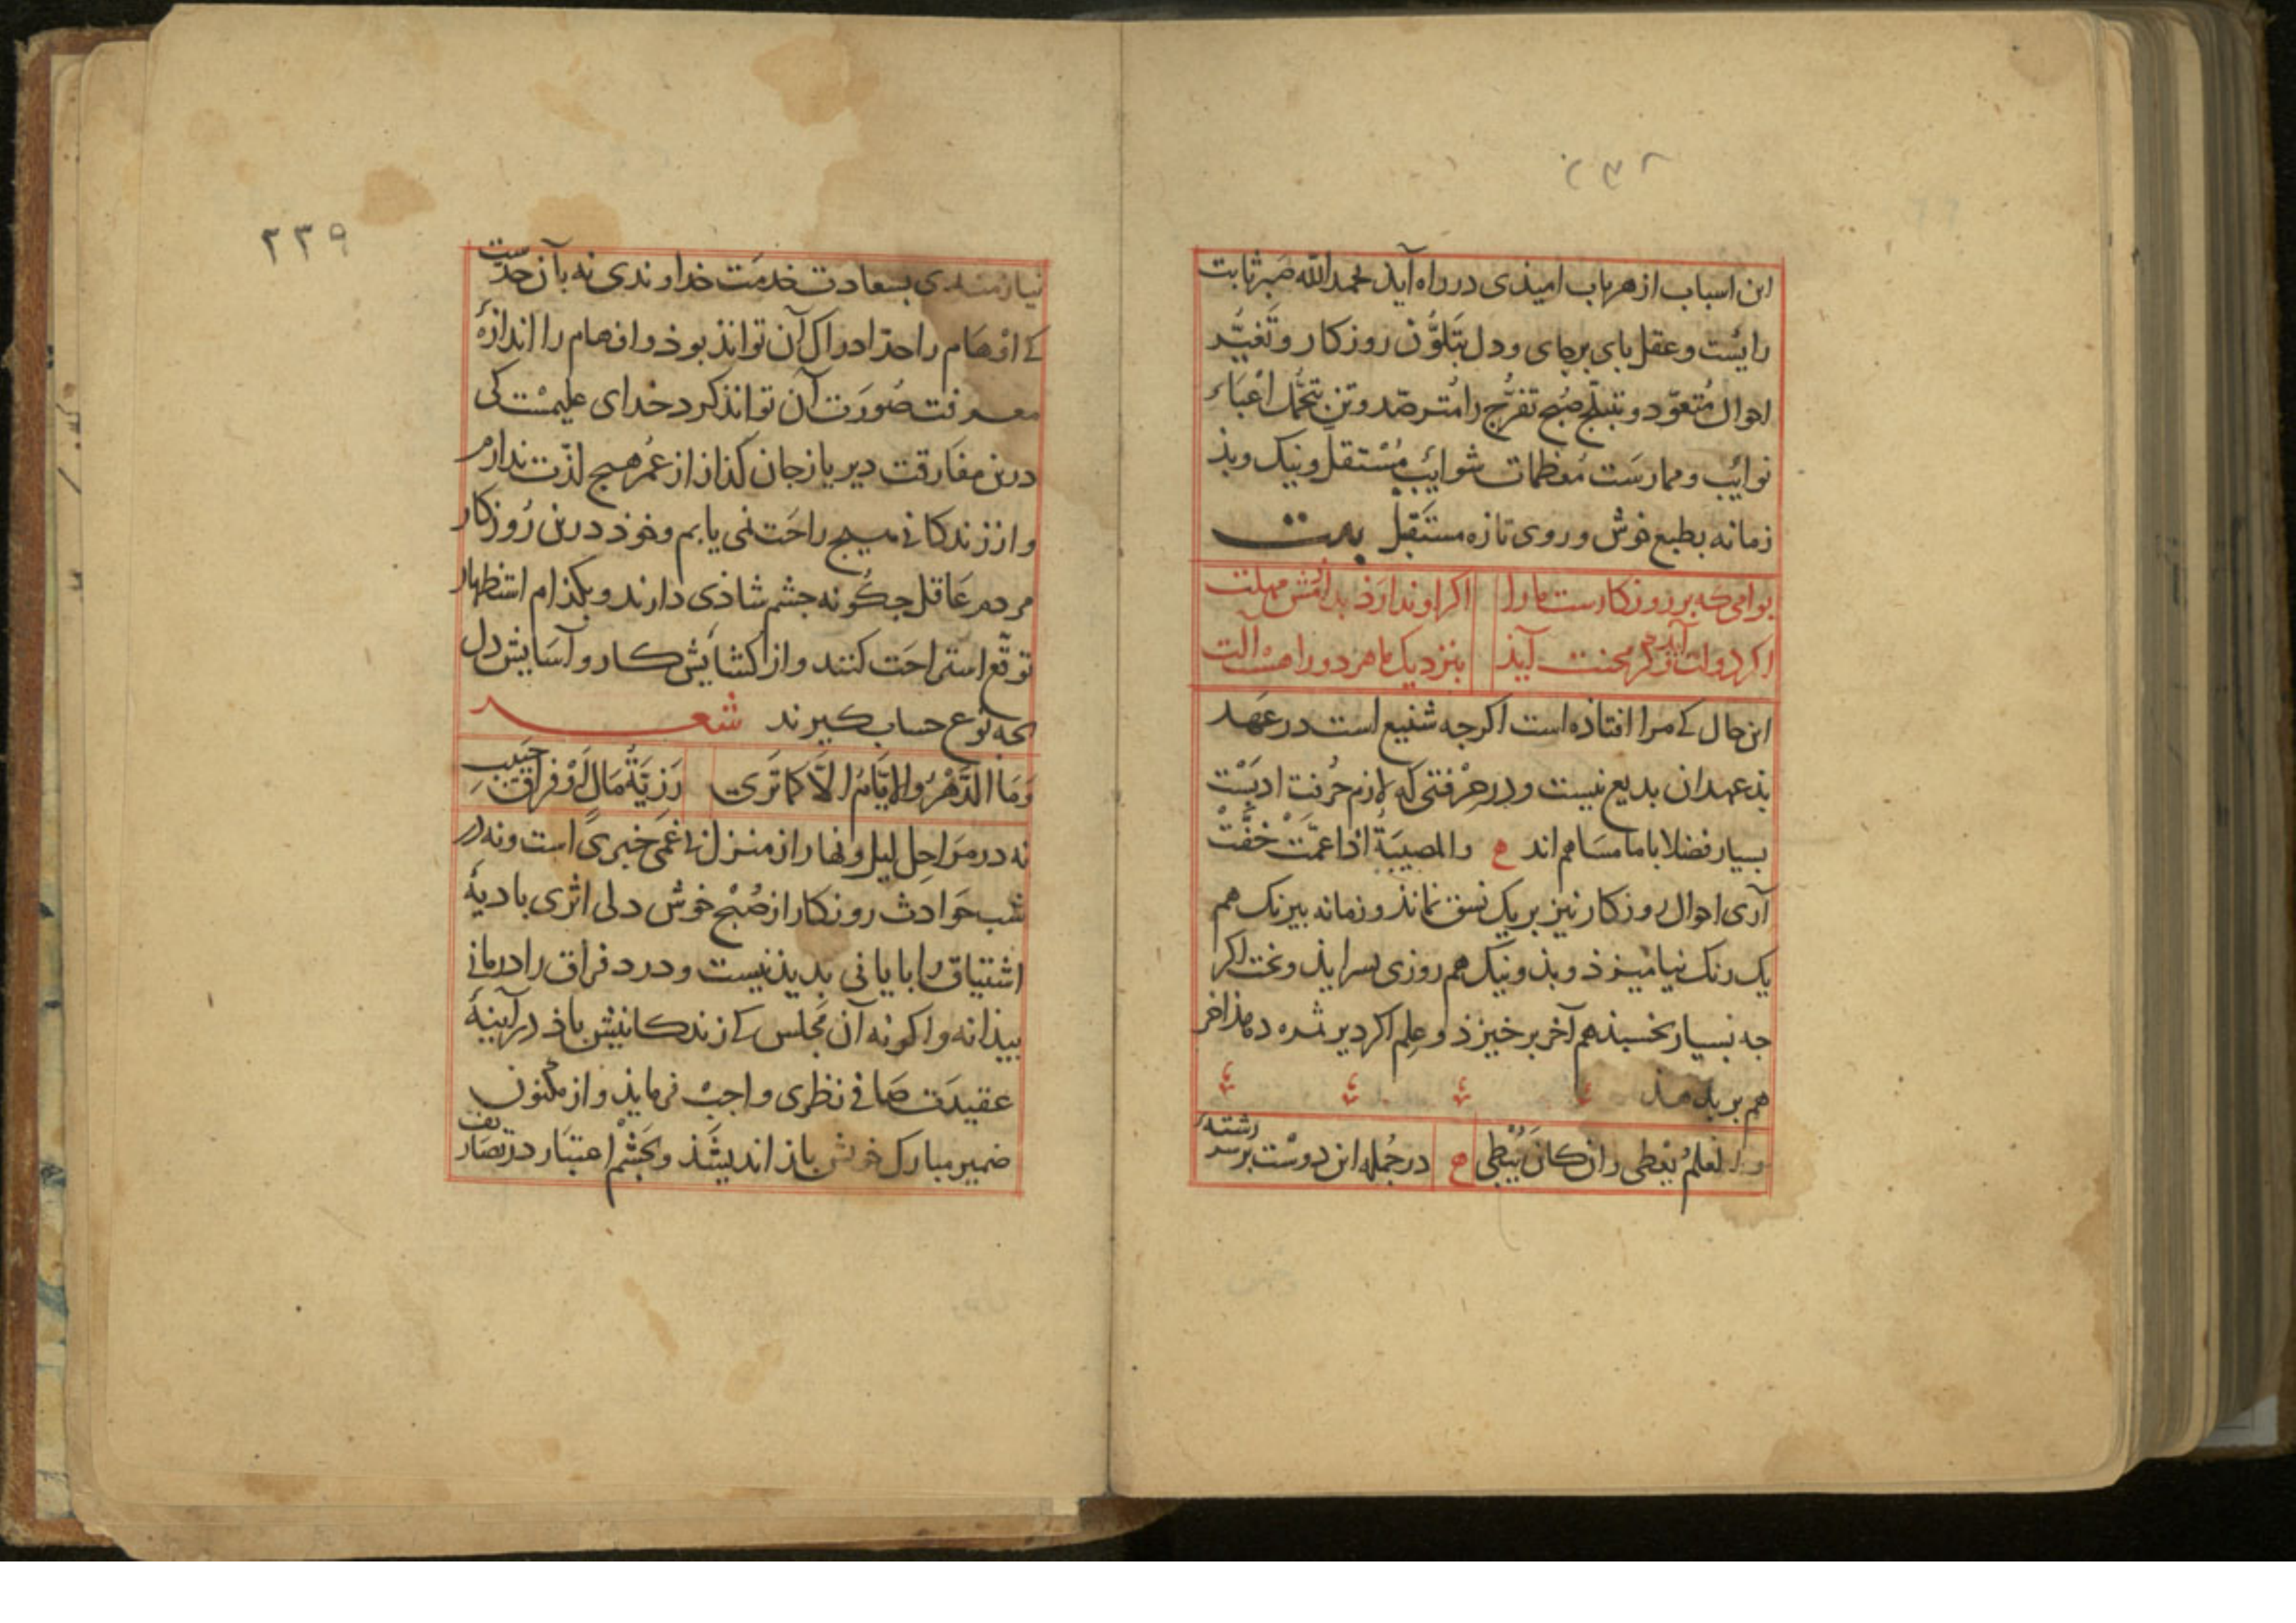 ۲۳۸
این اسباب از هر باب امیذی در راه آید بحمد الله صبر ثابت
رایست و عقل بای برجای و دل بتلوّن روزکار و تغیّر
احوال متعوّد و بتبلّج صبح تفرّج را مترصّد و تن بتحمّل اعباء
نوائب و ممارست معظمات شوائب مستقلّ و نیک و بذ
زمانه بطبع خوش و روی تازه مستقبل بیت
بوامی که بر روزکارست ما را اکر او ندارذ بدانش مهلت
اکر دولت آید وکر محنت آیذ بنزدیک ما هر دو را هست آلت
این حال کی مرا افتاذه است اکرجه شنیع است در عهد
بذ عهدان بدیع نیست و در حرفتی که لازم حرفت ادبست
بسیار فضلا با ما مساهم اند ع والمصیبة اذا عمّت خفّت
آری احوال روزکار نیز بر یک نسق نماند و زمانه بیرنک هم
یک رنک نیامیزذ و بذ و نیک هم روزی بسر ایذ و بخت اکر
جه بسیار بخسبذ هم آخر برخیزذ و علم اکر دیر ثمره دهذ اخر
هم بر بدهذ
والعلم یعطی وان کان یبطی ع در جمله این دوست بر سر رشته
۲۳۹
نیازمندی بسعادت خدمت خداوندی نه بآن حدّست
کی افهام را حدّ ادراک آن تواند بوذ و اوهام را اندازهٔ
معرفت صورت آن تواند کرد خدای علیمست کی
درین مفارقت دیریاز جان کذاز از عمر هیج لذّت ندارم
و از زندکانی هیج راحت نمی یابم و خوذ درین روزکار
مردم عاقل جکونه جشم شاذی دارند و بکذام استظهار
توقّع استراحت کنند و از کشایش کار و آسایش دل
بجه نوع حساب کیرند شعر
وما الدّهر والایّام الّا کما تری رزیّة مال او فراق حبیب
نه در مراحل لیل و نهار از منزل بی غمی خبری است و نه در
شب حوادث روزکار از صبح خوش دلی اثری بادیهٔ
اشتیاق را بایانی بدیذ نیست و درد فراق را درمانی
بیذا نه و اکر نه آن مجلس کی زندکانیش باذ در آینهٔ
عقیدت صافی نظری واجب فرمایذ و از مکنون
ضمیر مبارک خویش باز اندیشذ و بجشم اعتبار در تصاریف